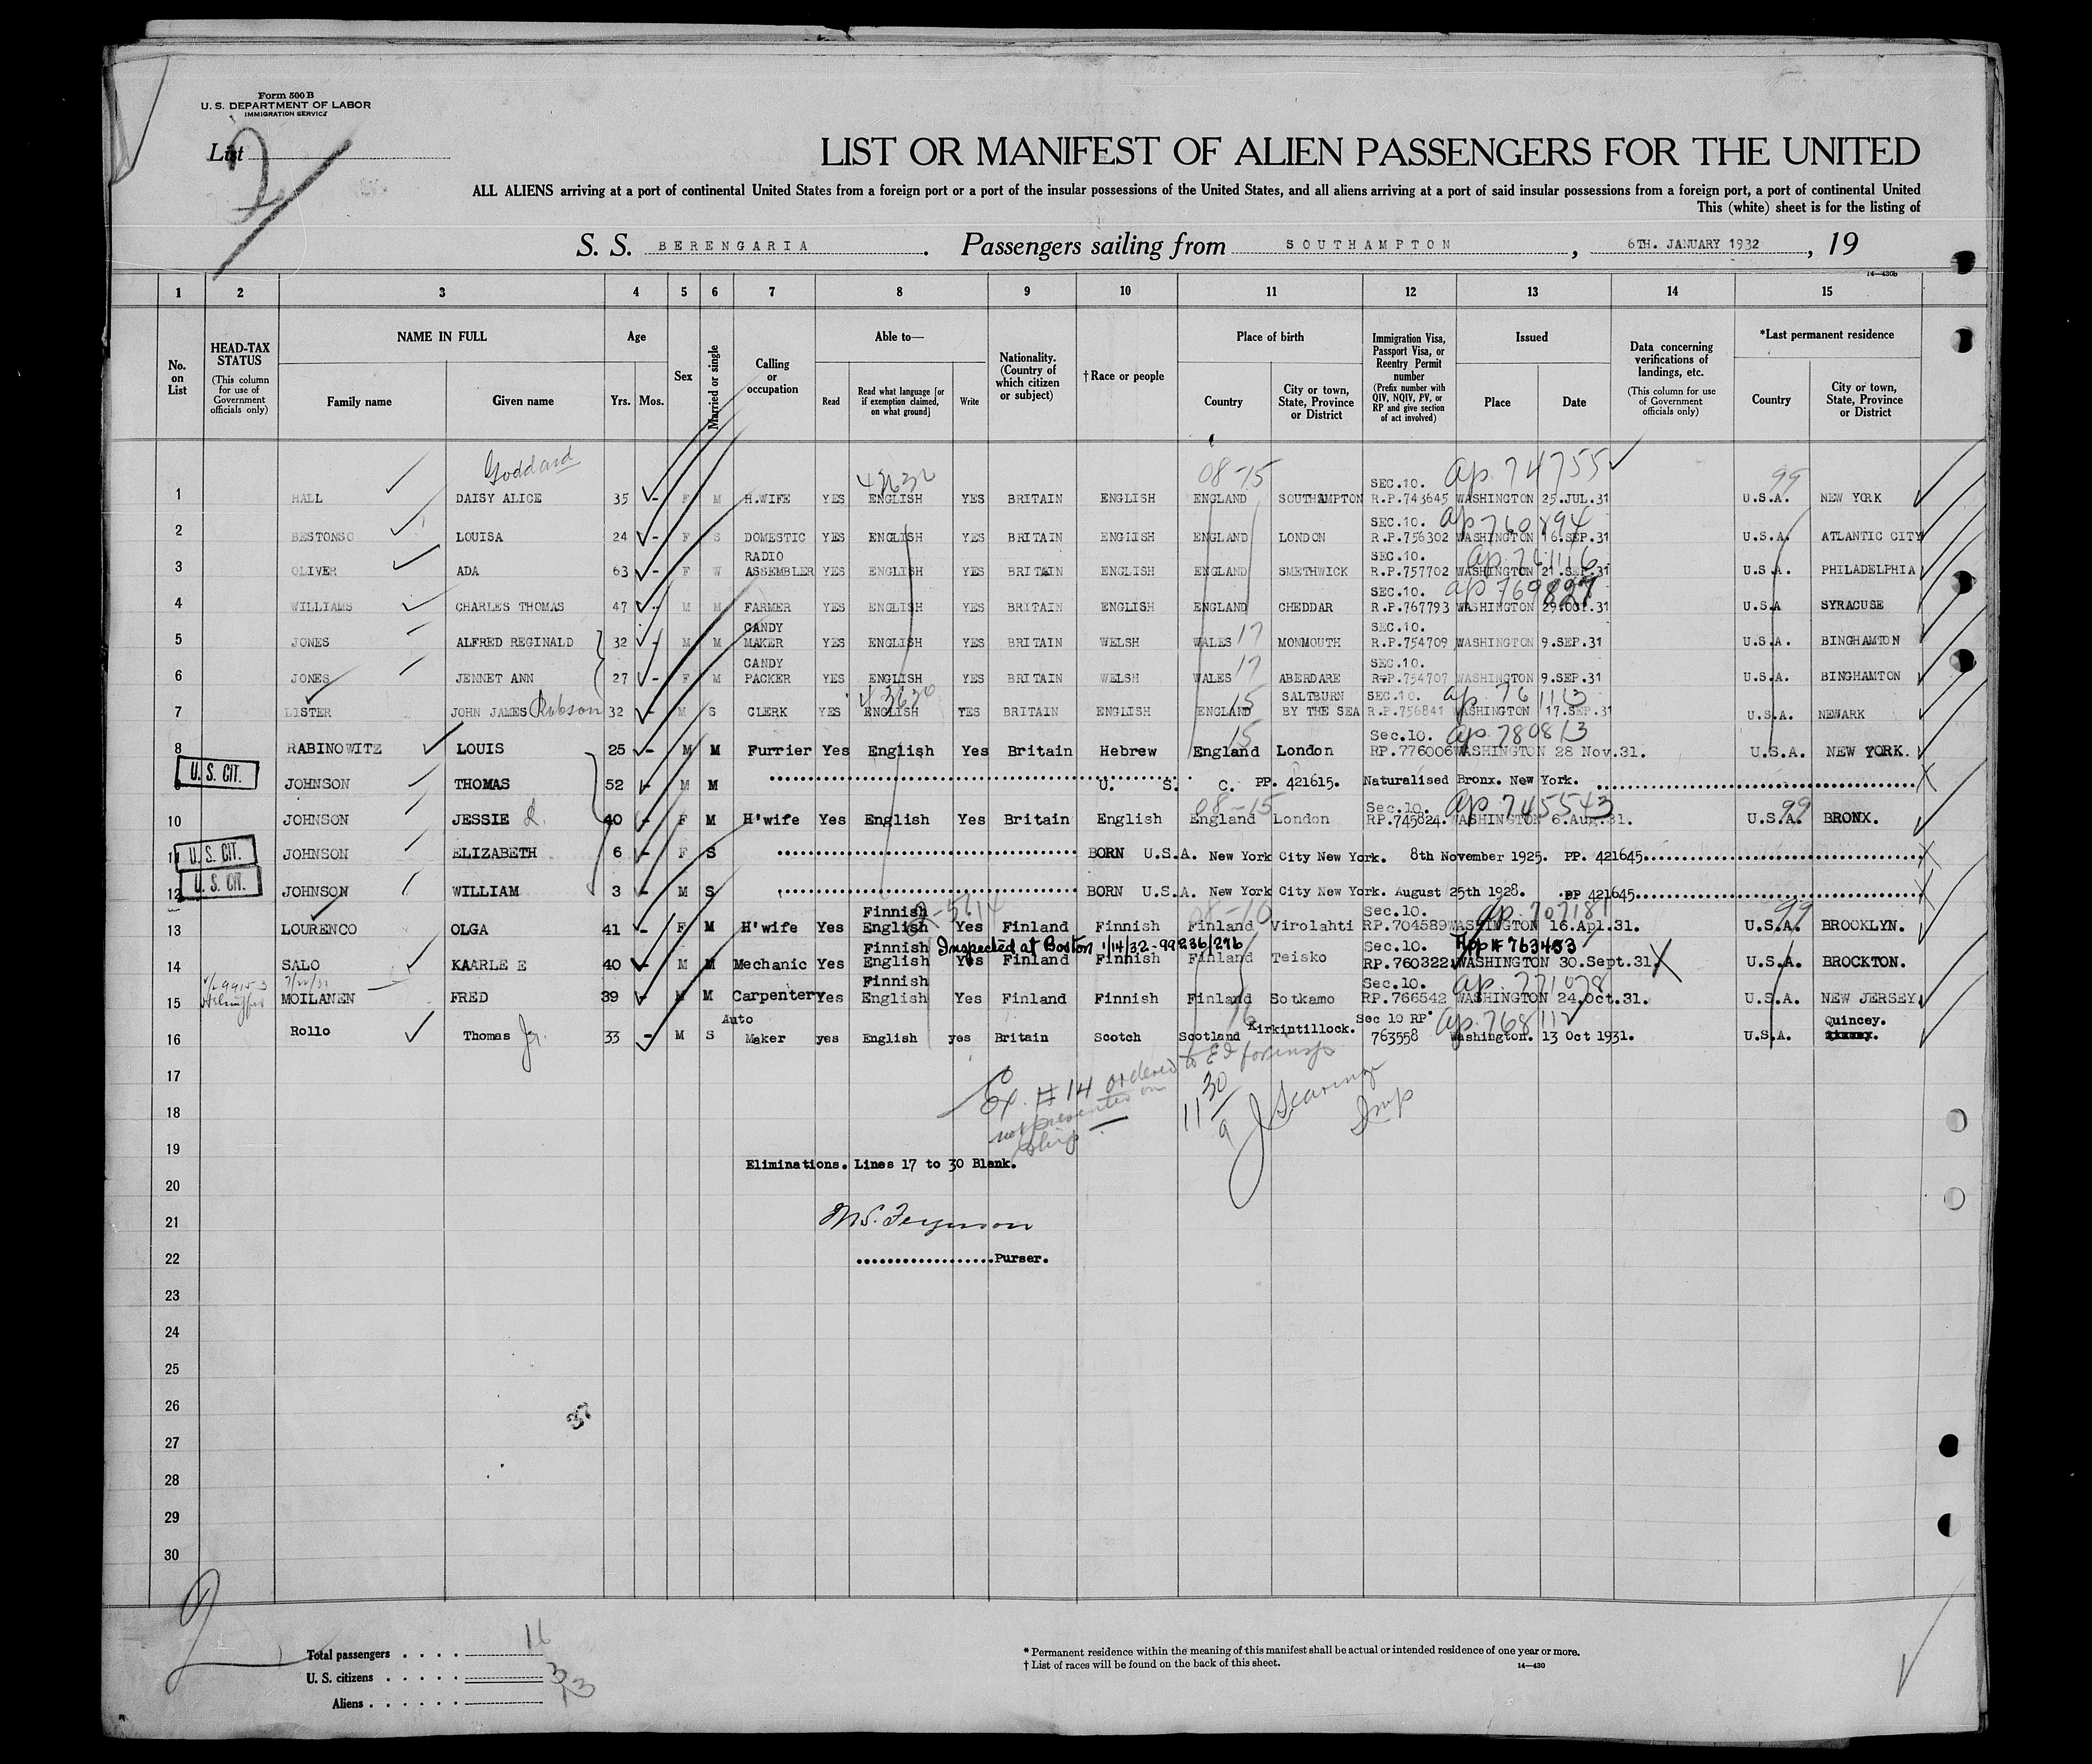 Form 500 B
U. S. DEPARTMENT OF LABOR
IMMIGRATION SERVICE
List 2
LIST OR MANIFEST OF ALIEN PASSENGERS FOR THE UNITED
ALL ALIENS arriving at a port of continental United States from a foreign port or a port of the insular possessions of the United States, and all aliens arriving at a port of said insular possessions from a foreign port, a port of continental United
This (white) sheet is for the listing of
S. S. BERENGARIA. Passengers sailing from SOUTHAMPTON, 6TH. JANUARY 1932, 19
14—430b
1 2 3 4 5 6 7 8 9 10 11 12 13 14 15
No. on List
HEAD-TAX STATUS (This column for use of Government officials only)
NAME IN FULL
Family name Given name
Age
Yrs. Mos.
Sex
Married or single
Calling or occupation
Able to—
Read Read what language [or if exemption claimed, on what ground] Write
Nationality. (Country of which citizen or subject)
†Race or people
Place of birth
Country City or town, State, Province or District
Immigration Visa, Passport Visa, or Reentry Permit number (Prefix number with QIV, NQIV, PV, or RP and give section of act involved)
Issued
Place Date
Data concerning verifications of landings, etc. (This column for use of Government officials only)
*Last permanent residence
Country City or town, State, Province or District
Goddard 08-15 SEC.10. ap. 74755 99
1 HALL DAISY ALICE 35 - F M H.WIFE YES ENGLISH YES BRITAIN ENGLISH ENGLAND SOUTHAMPTON R.P.743645 WASHINGTON 25.JUL.31 U.S.A. NEW YORK
SEC.10. ap 760894
2 BESTONSO LOUISA 24 - F S DOMESTIC YES ENGLISH YES BRITAIN ENGLISH ENGLAND LONDON R.P.756302 WASHINGTON 16.SEP.31 U.S.A. ATLANTIC CITY
RADIO SEC.10. ap. 761116
3 OLIVER ADA 63 - F W ASSEMBLER YES ENGLISH YES BRITAIN ENGLISH ENGLAND SMETHWICK R.P.757702 WASHINGTON 21.SEP.31 U.S.A. PHILADELPHIA
SEC.10. ap 769827
4 WILLIAMS CHARLES THOMAS 47 - M M FARMER YES ENGLISH YES BRITAIN ENGLISH ENGLAND CHEDDAR R.P.767793 WASHINGTON 29.OCT.31 U.S.A SYRACUSE
CANDY SEC.10.
5 JONES ALFRED REGINALD 32 - M M MAKER YES ENGLISH YES BRITAIN WELSH WALES 17 MONMOUTH R.P.754709 WASHINGTON 9.SEP.31 U.S.A. BINGHAMTON
CANDY SEC.10.
6 JONES JENNET ANN 27 - F M PACKER YES ENGLISH YES BRITAIN WELSH WALES 17 ABERDARE R.P.754707 WASHINGTON 9.SEP.31 U.S.A. BINGHAMTON
SALTBURN SEC.10. ap. 761113
7 LISTER JOHN JAMES Robson 32 - M S CLERK YES ENGLISH YES BRITAIN ENGLISH ENGLAND 15 BY THE SEA R.P.756841 WASHINGTON 17.SEP.31 U.S.A. NEWARK
15 Sec.10. ap. 780813
8 RABINOWITZ LOUIS 25 - M M Furrier Yes English Yes Britain Hebrew England London RP.776006 WASHINGTON 28 Nov.31. U.S.A. NEW YORK.
U. S. CIT.
JOHNSON THOMAS 52 - M M U. S. C. PP. 421615. Naturalised Bronx. New York.
08-15 Sec.10. ap. 745543 99
10 JOHNSON JESSIE L. 40 - F M H'wife Yes English Yes Britain English England London RP.745824. WASHINGTON 6.Aug.31. U.S.A. BRONX.
U. S. CIT.
11 JOHNSON ELIZABETH 6 - F S BORN U.S.A. New York City New York. 8th November 1925. PP. 421645
U. S. CIT.
12 JOHNSON WILLIAM 3 - M S BORN U.S.A. New York City New York. August 25th 1928. PP 421645
Finnish 2-5614 08-10 Sec.10. ap. 707181 99
13 LOURENCO OLGA 41 - F M H'wife Yes English Yes Finland Finnish Finland Virolahti RP.704589 WASHINGTON 16.Apl.31. U.S.A. BROOKLYN.
Finnish Inspected at Boston 1/14/32-99236/276 Sec.10. App# 763453
14 SALO KAARLE E 40 - M M Mechanic Yes English Yes Finland Finnish Finland Teisko RP.760322 WASHINGTON 30.Sept.31. U.S.A. BROCKTON.
Finnish Sec.10. ap. 771078
15 MOILANEN FRED 39 - M M Carpenter Yes English Yes Finland Finnish Finland Sotkamo RP.766542 WASHINGTON 24.Oct.31. U.S.A. NEW JERSEY.
Auto 16 Sec 10 RP. ap. 768112 Quincey.
16 Rollo Thomas Jr. 33 - M S Maker yes English yes Britain Scotch Scotland Kirkintillock. 763558 Washington. 13 Oct 1931. U.S.A.
17
Ex. #14 ordered to EI for insp
18
not presented on ship
11 30/9 J Scaringe Insp
19
Eliminations. Lines 17 to 30 Blank.
20
21
M S. Ferguson
22
Purser.
23
24
25
26
37
27
28
29
30
Total passengers . . . . 16
U. S. citizens . . . . . 3
Aliens . . . . . . 13
* Permanent residence within the meaning of this manifest shall be actual or intended residence of one year or more.
† List of races will be found on the back of this sheet.
14—430